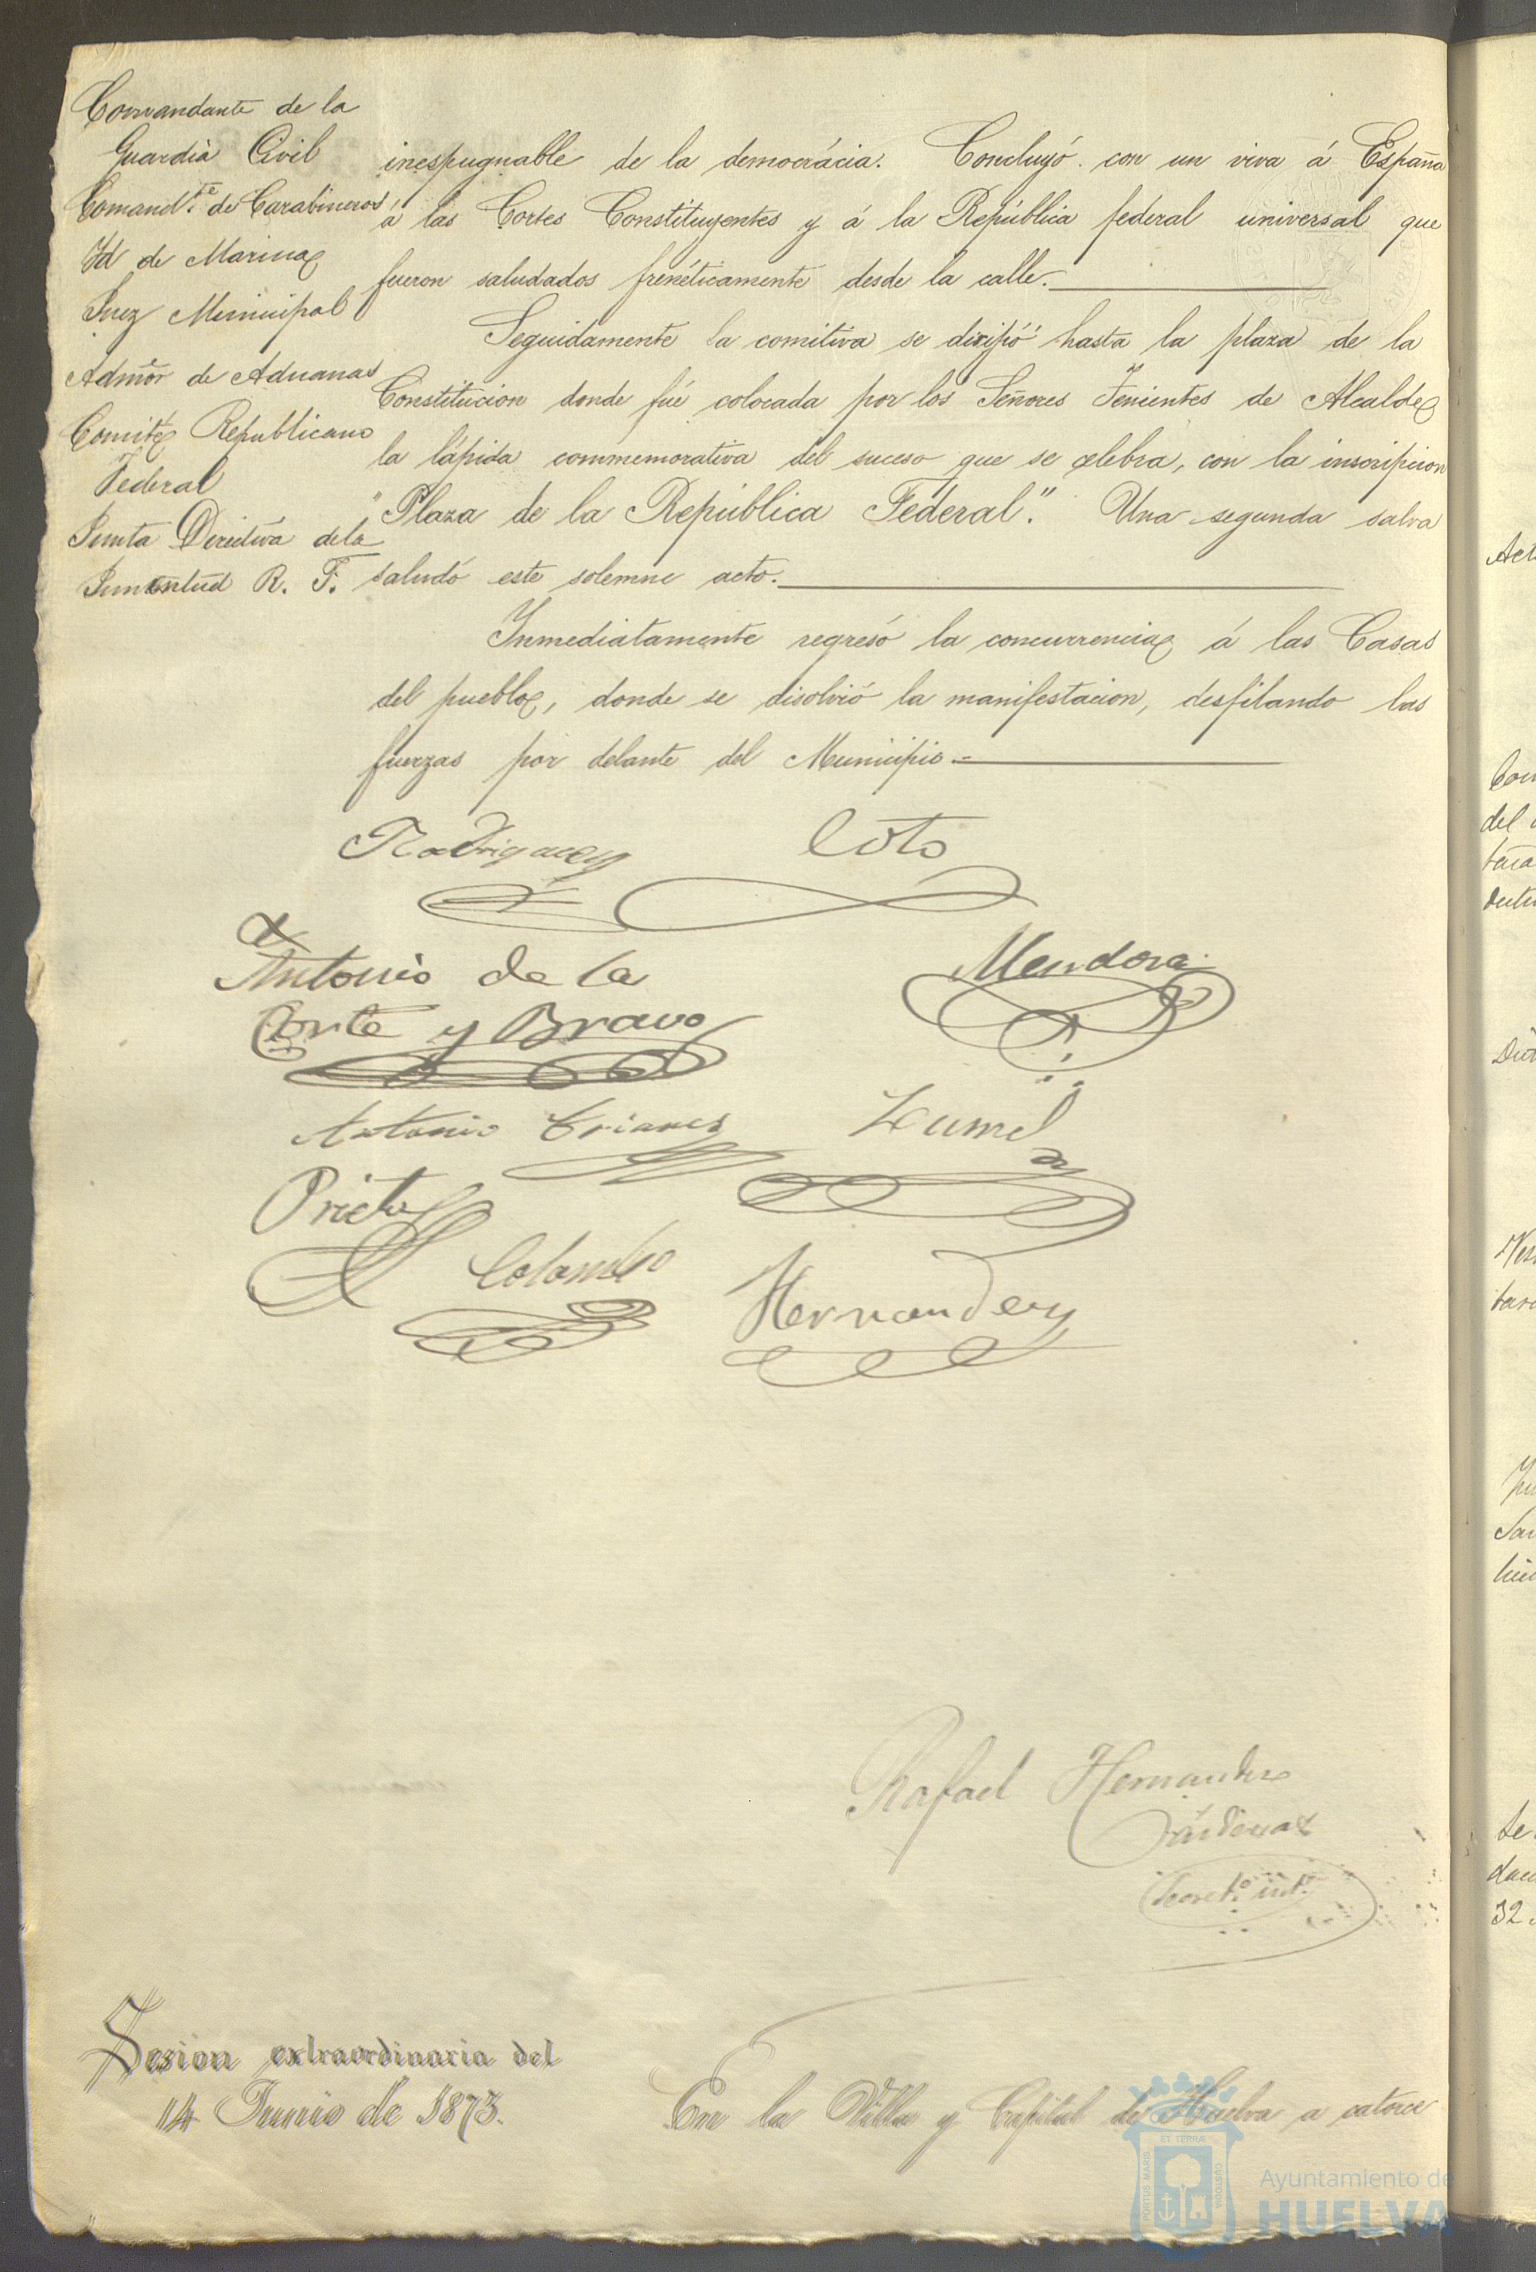 Comandante de la
Guardia Civil
Comand.te de Carabineros
Id de Marina
Juez Municipal
Admõr de Aduanas
Comité Republicano
Federal
Junta Directiva de la
Juventud R. F.
inespugnable de la democrácia. Concluyó con un viva á España
á las Cortes Constituyentes y á la República federal universal que
fueron saludados frenéticamente desde la calle.
Seguidamente la comitiva se dirijió hasta la plaza de la
Constitucion donde fué colocada por los Señores Tenientes de Alcalde
la lápida commemorativa del suceso que se celebra, con la inscripcion
"Plaza de la República Federal". Una segunda salva
saludó este solemne acto.
Inmediatamente regresó la concurrencia á las Casas
del pueblo, donde se disolvió la manifestacion, desfilando las
fuerzas por delante del Municipio.=
Rodriguez Coto
Antonio de la
Corte y Bravo
Mendoza
Antonio Trianes
Prieto
Colombo
Hernandez
Rafael Hernandez
Cárdenas
Secret.o int.o
Sesion extraordinaria del
14 Junio de 1873.
En la Villa y Capital de Huelva a catorce
PORTUS MARIS
ET TERRÆ
CUSTODIA
Ayuntamiento de
HUELVA